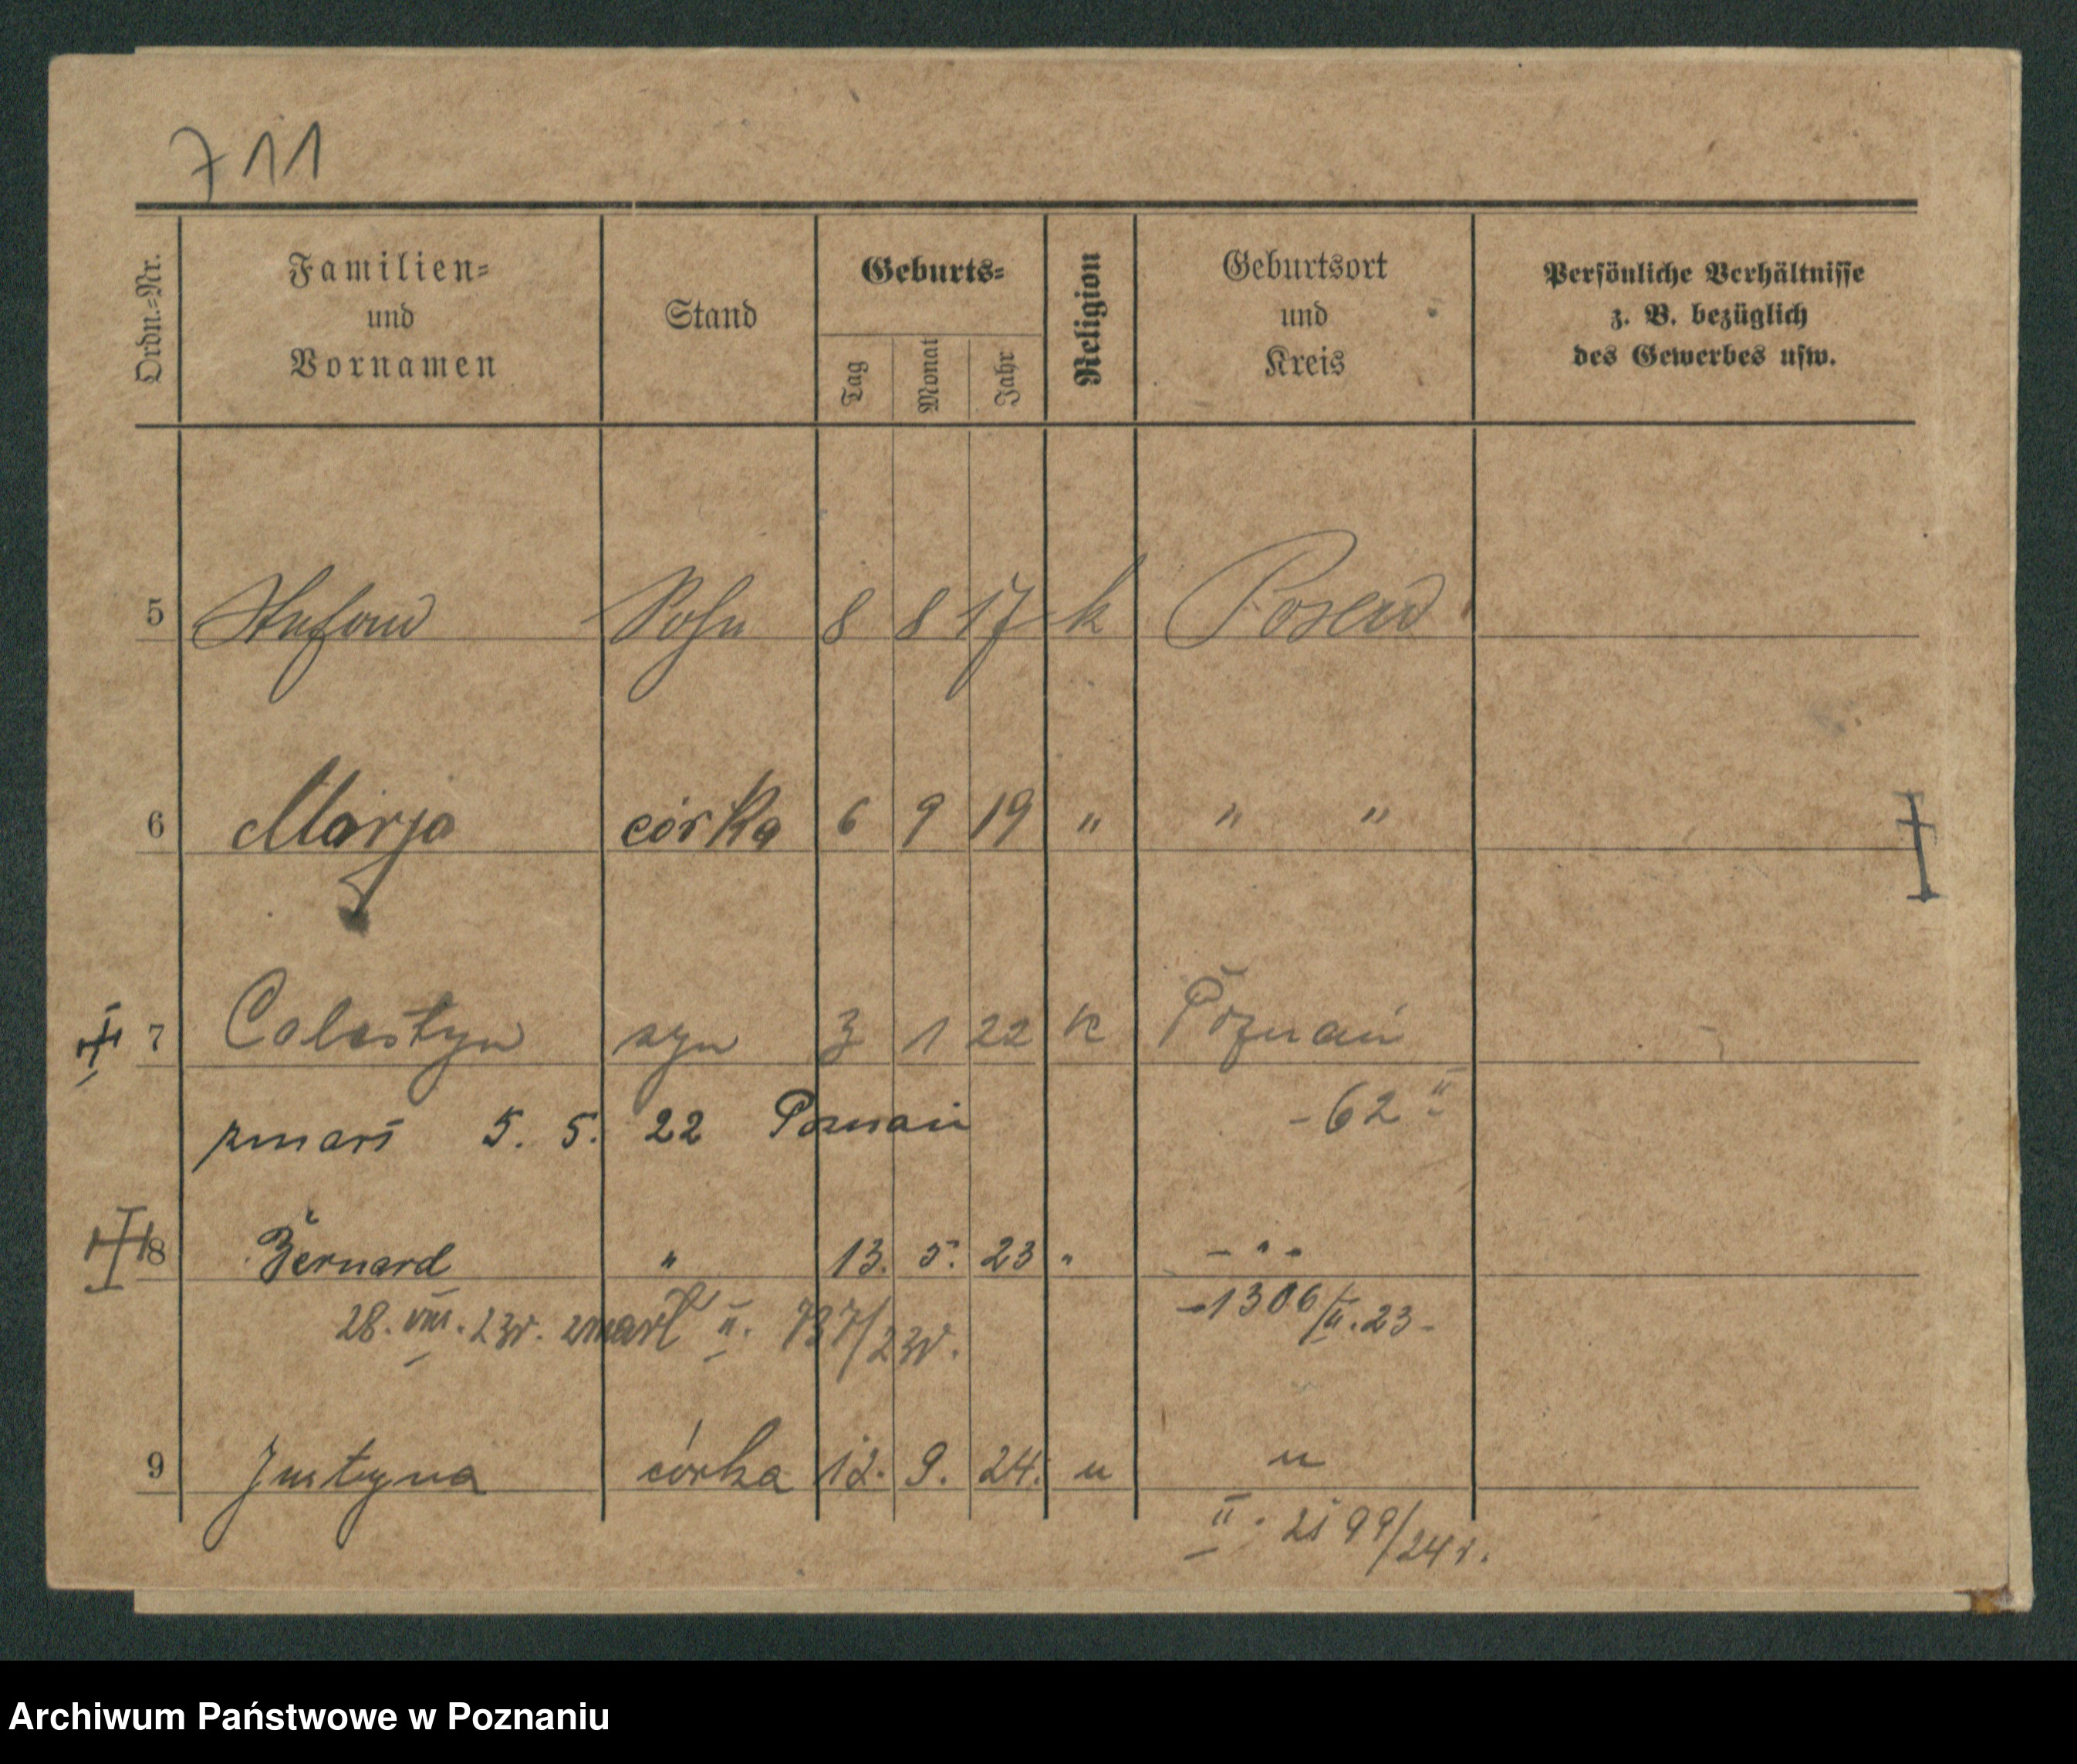 711
Ordn.-Nr. Familien- und Vornamen Stand Geburts- Tag Monat Jahr Religion Geburtsort und Kreis Persönliche Verhältnisse z. B. bezüglich des Gewerbes usw.
5 Stefan Sohn 8 8 17 k Posen
6 Marja córka 6 9 19 " " "
7 Celestyn syn 3 1 22 k Poznań
- 62 II
zmarł 5. 5. 22 Poznań
8 Bernard " 13. 5. 23 " - " -
28. VIII. 23r. zmarł II. 737/23r. - 1306/II. 23 -
9 Justyna córka 12. 9. 24. " "
II. 2199/24 r.
Archiwum Państwowe w Poznaniu